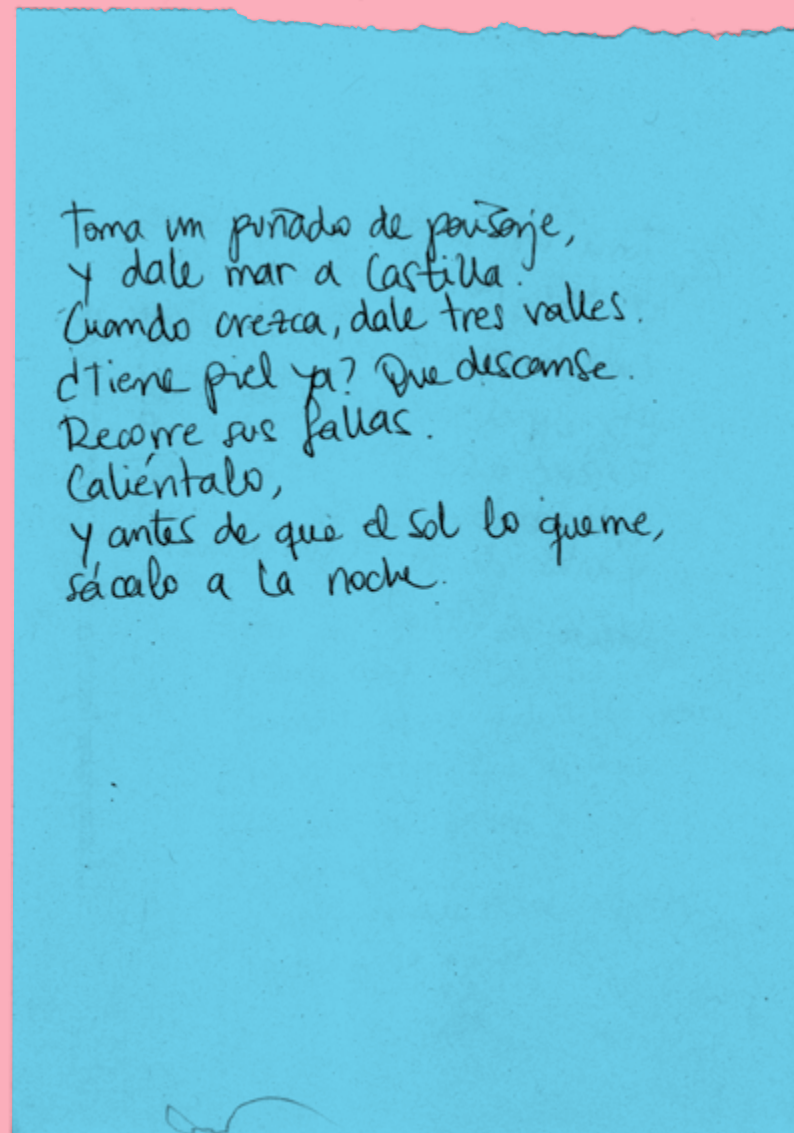 Toma un puñado de paisaje,
y dale mar a Castilla.
Cuando crezca, dale tres valles.
¿Tiene piel ya? Que descanse.
Recorre sus fallas.
Caliéntalo,
y antes de que el sol lo queme,
sácalo a la noche.